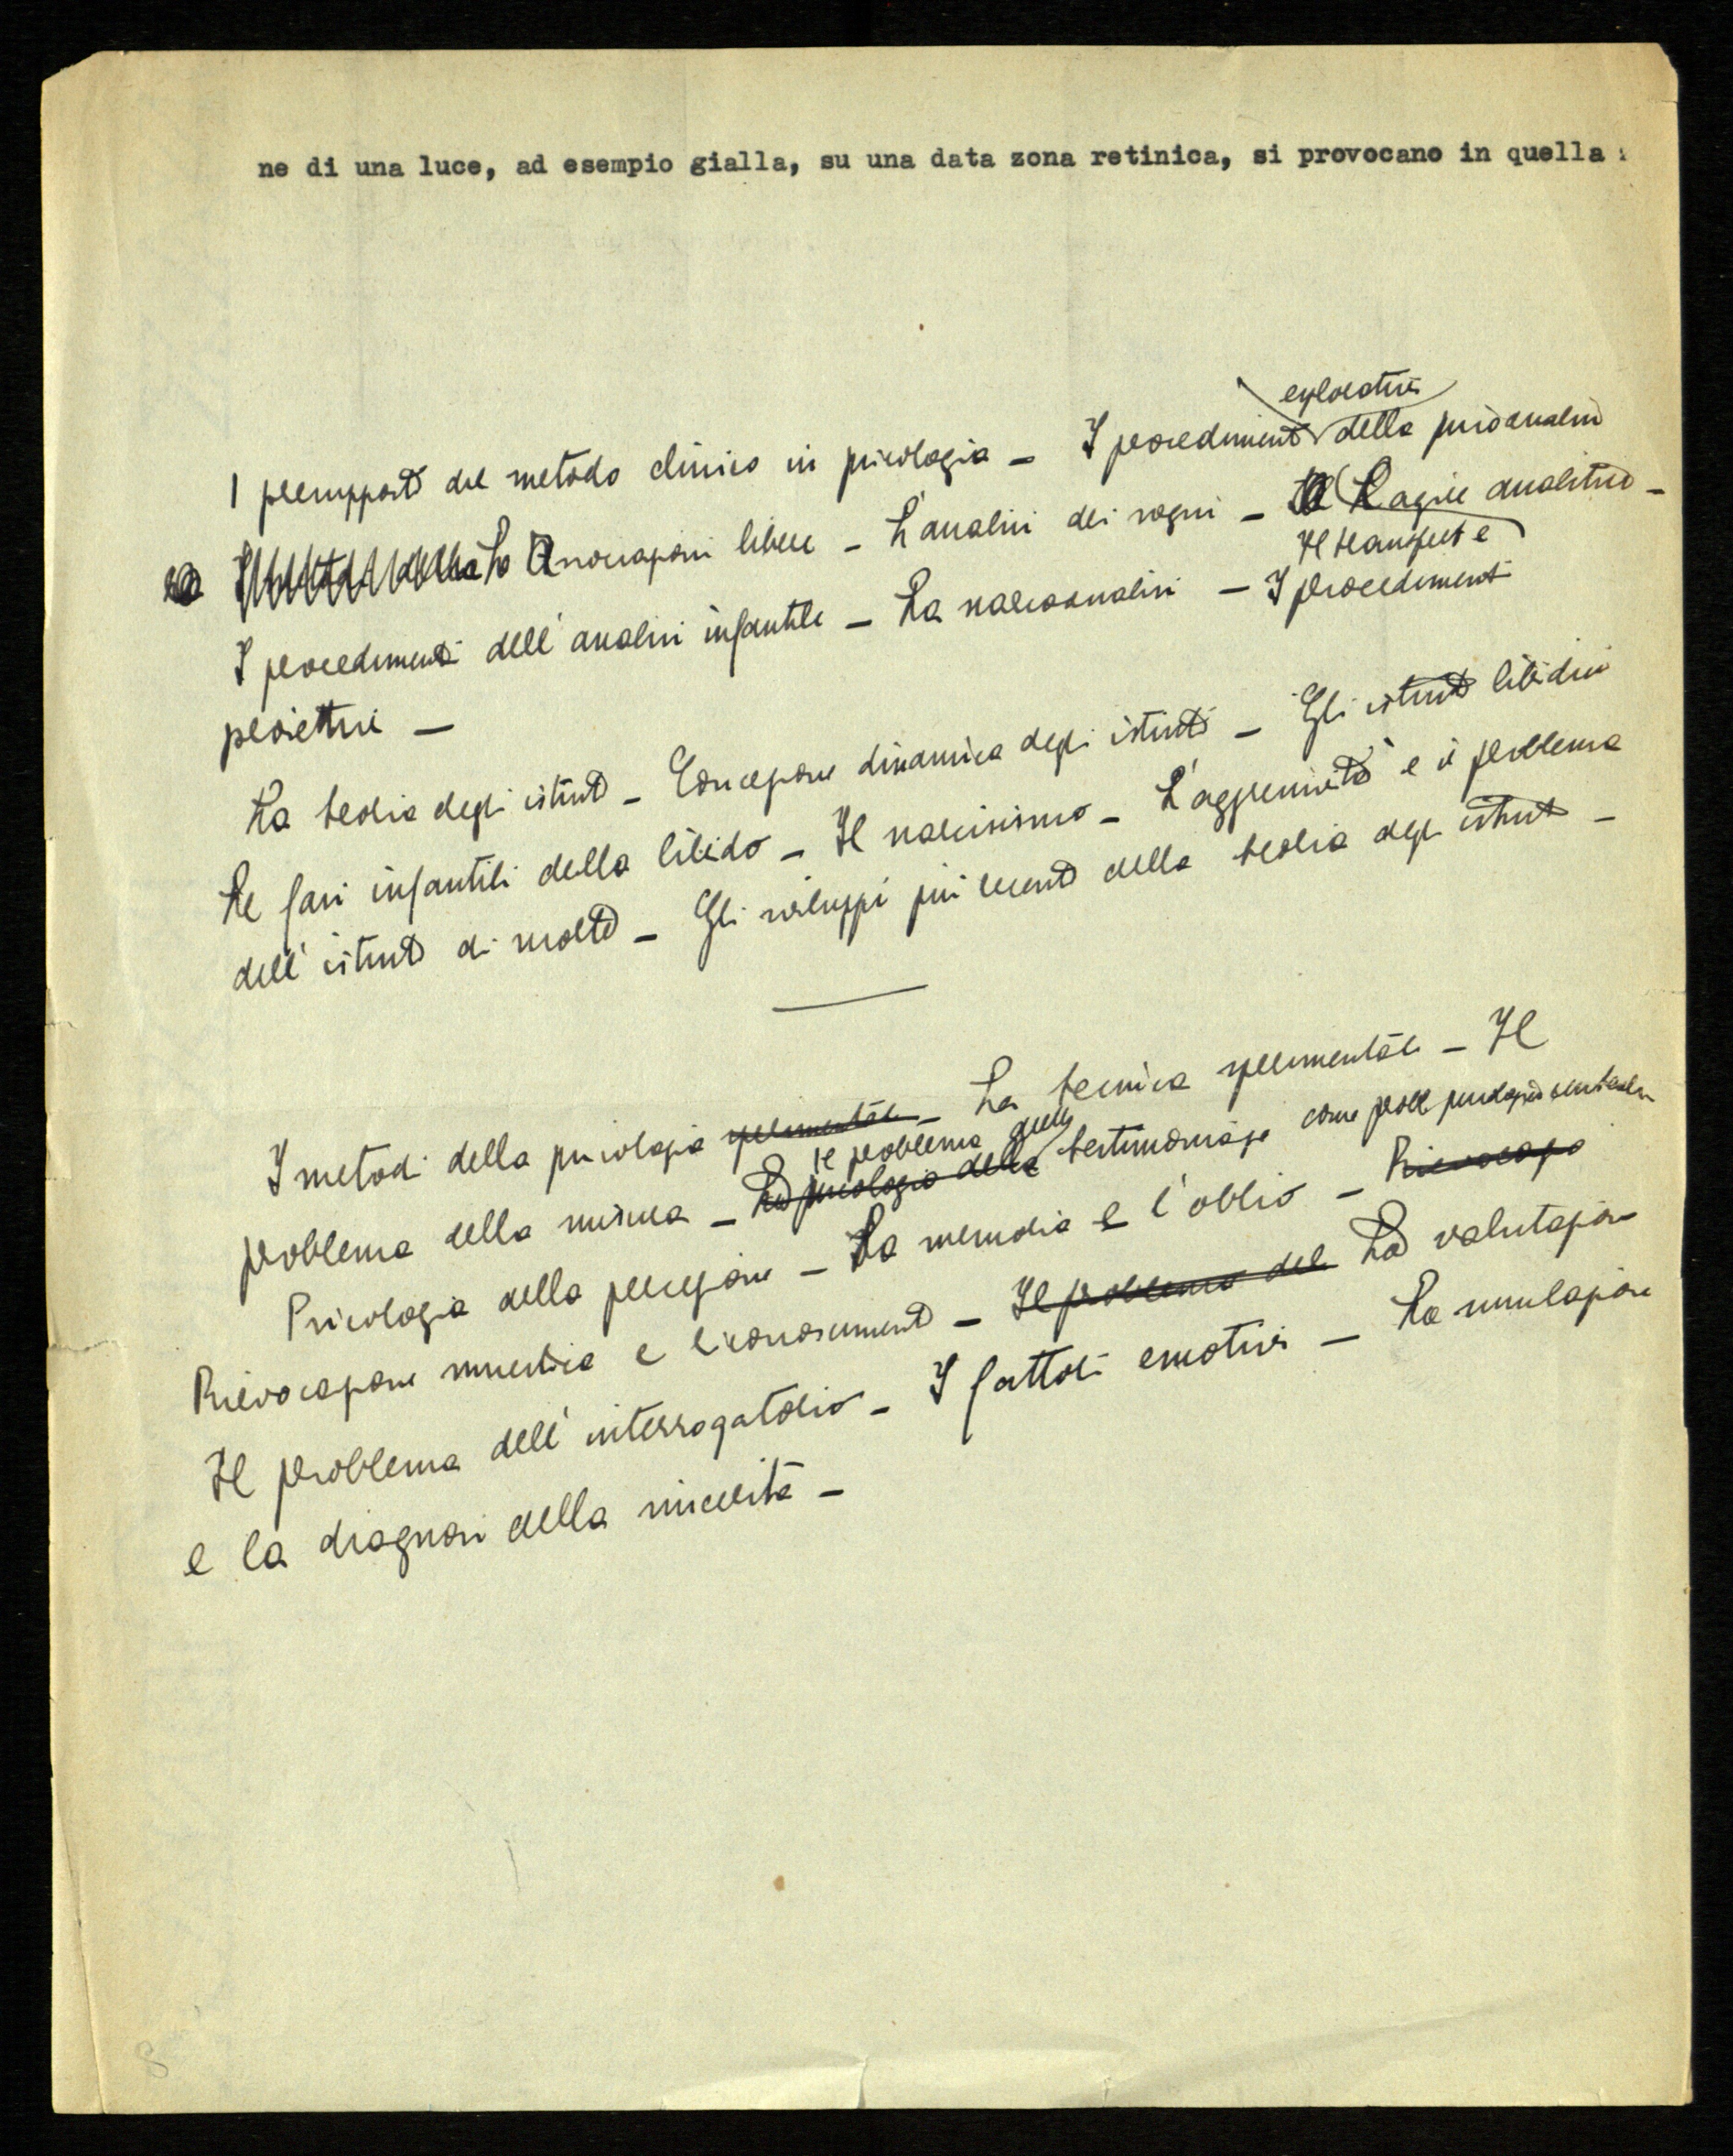 ne di una luce, ad esempio gialla, su una data zona retinica, si provocano in quella
esplorativi
I presupposti del metodo clinico in psicologia - I procedimenti della psicoanalisi
Le Associazioni libere - L'analisi dei sogni - L'agire analitico -
Il transfert e
I procedimenti dell'analisi infantile - La narcoanalisi - I procedimenti
proiettivi -
La teoria degli istinti - Concezione dinamica degli istinti - Gli istinti libidici
Le fasi infantili della libido - Il narcisismo - L'aggressività e il problema
dell'istinto di morte - Gli sviluppi più recenti della teoria degli istinti -
I metodi della psicologia sperimentale - La tecnica sperimentale - Il
il problema della
problema della misura - La psicologia della testimonianza come probl psicologico
Psicologia della percezione - La memoria e l'oblio - Rievocazio
Rievocazione mnestica e riconoscimento - Il problema del La valutazione
Il problema dell'interrogatorio - I fattori emotivi - La simulazione
e la diagnosi della sincerità -
8